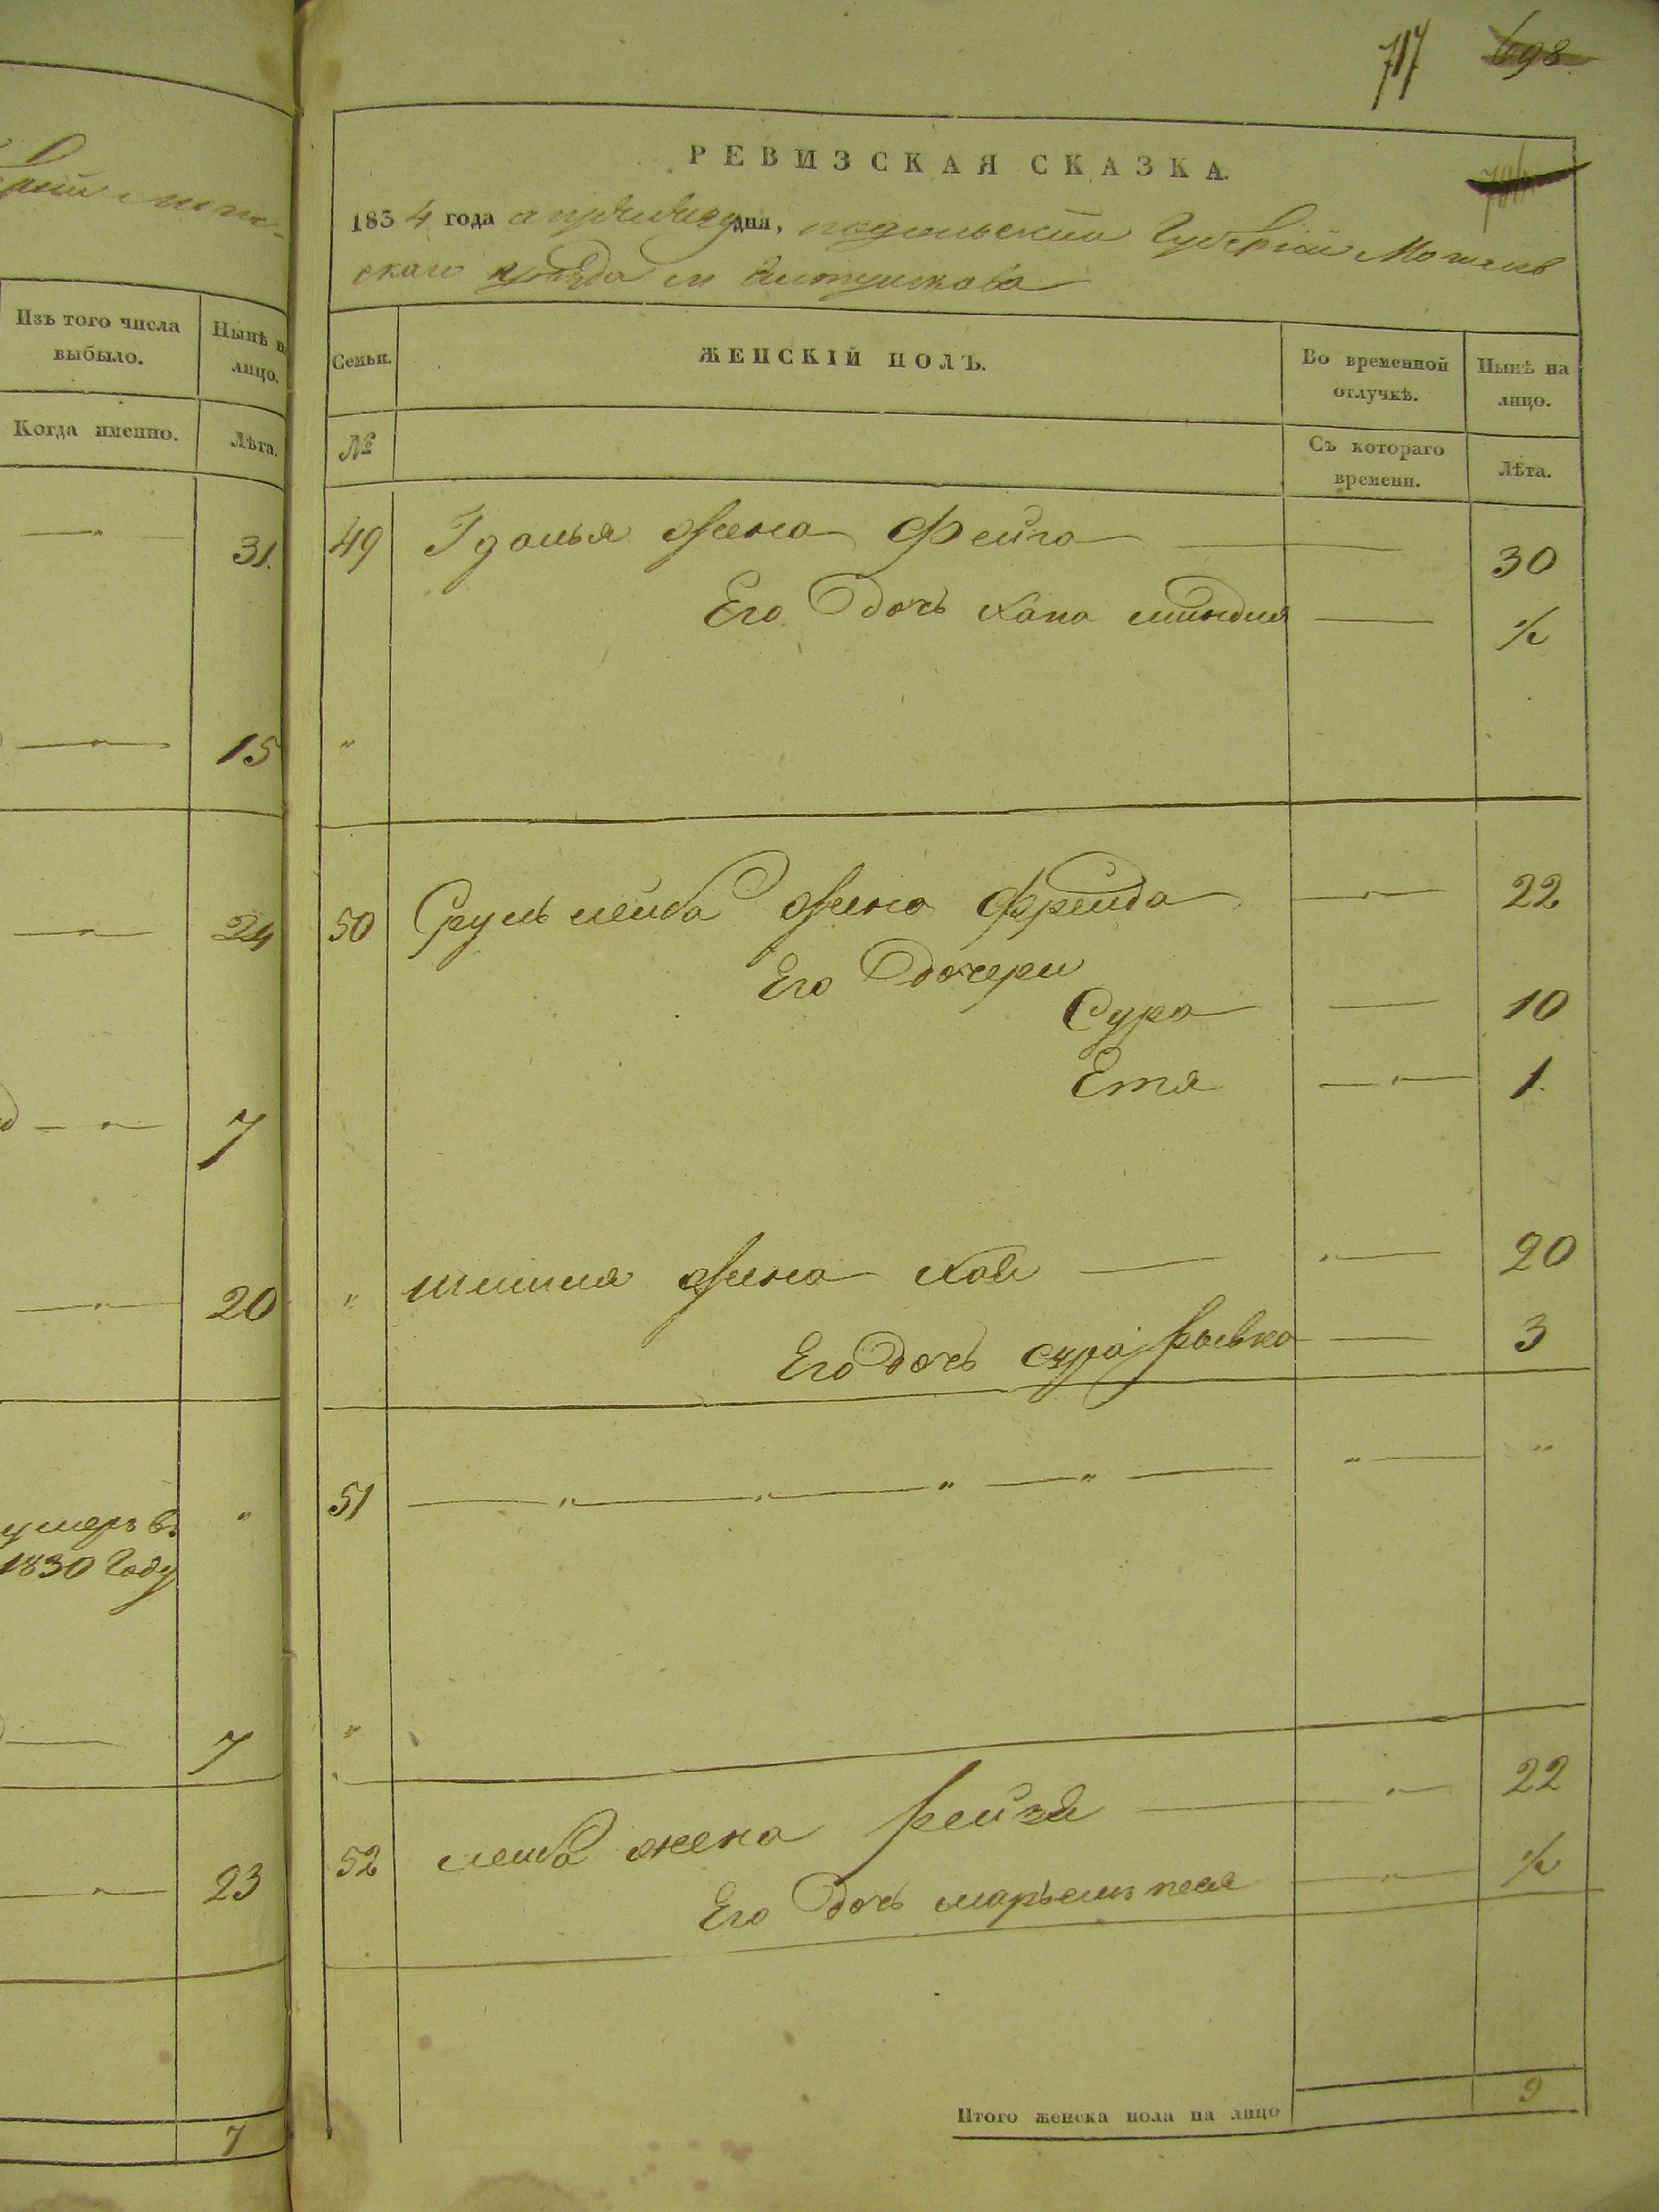 717 698
РЕВИЗСКАЯ СКАЗКА.
1834 года апреля дня, подольской Губернии Могилев
скаго уезда м
Изъ того числа
выбыло.
Нынѣ н
лицо.
Когда именно.
Лѣта.
31.
15
24
7
20
умеръ въ
1830 Году
"
7
23
7
Семьи.
ЖЕНСКІЙ ПОЛЪ.
Во временной
отлучкѣ.
Нынѣ на
лицо.
№
Съ котораго
времени.
Лѣта.
49 Гдалья жена Фейга — 30
Его дочь хана миндля — ½
"
50 Сруль лейба жена Фрейда — 22
Его дочери
Сура — 10
Етя — 1.
" жена хая — 20
Его дочь сура рывка — 3
51 — " — " — " — " — " — "
"
52 лейба жена рейзя — 22
Его дочь марьемъ песя — ½
Итого женска пола на лицо 9